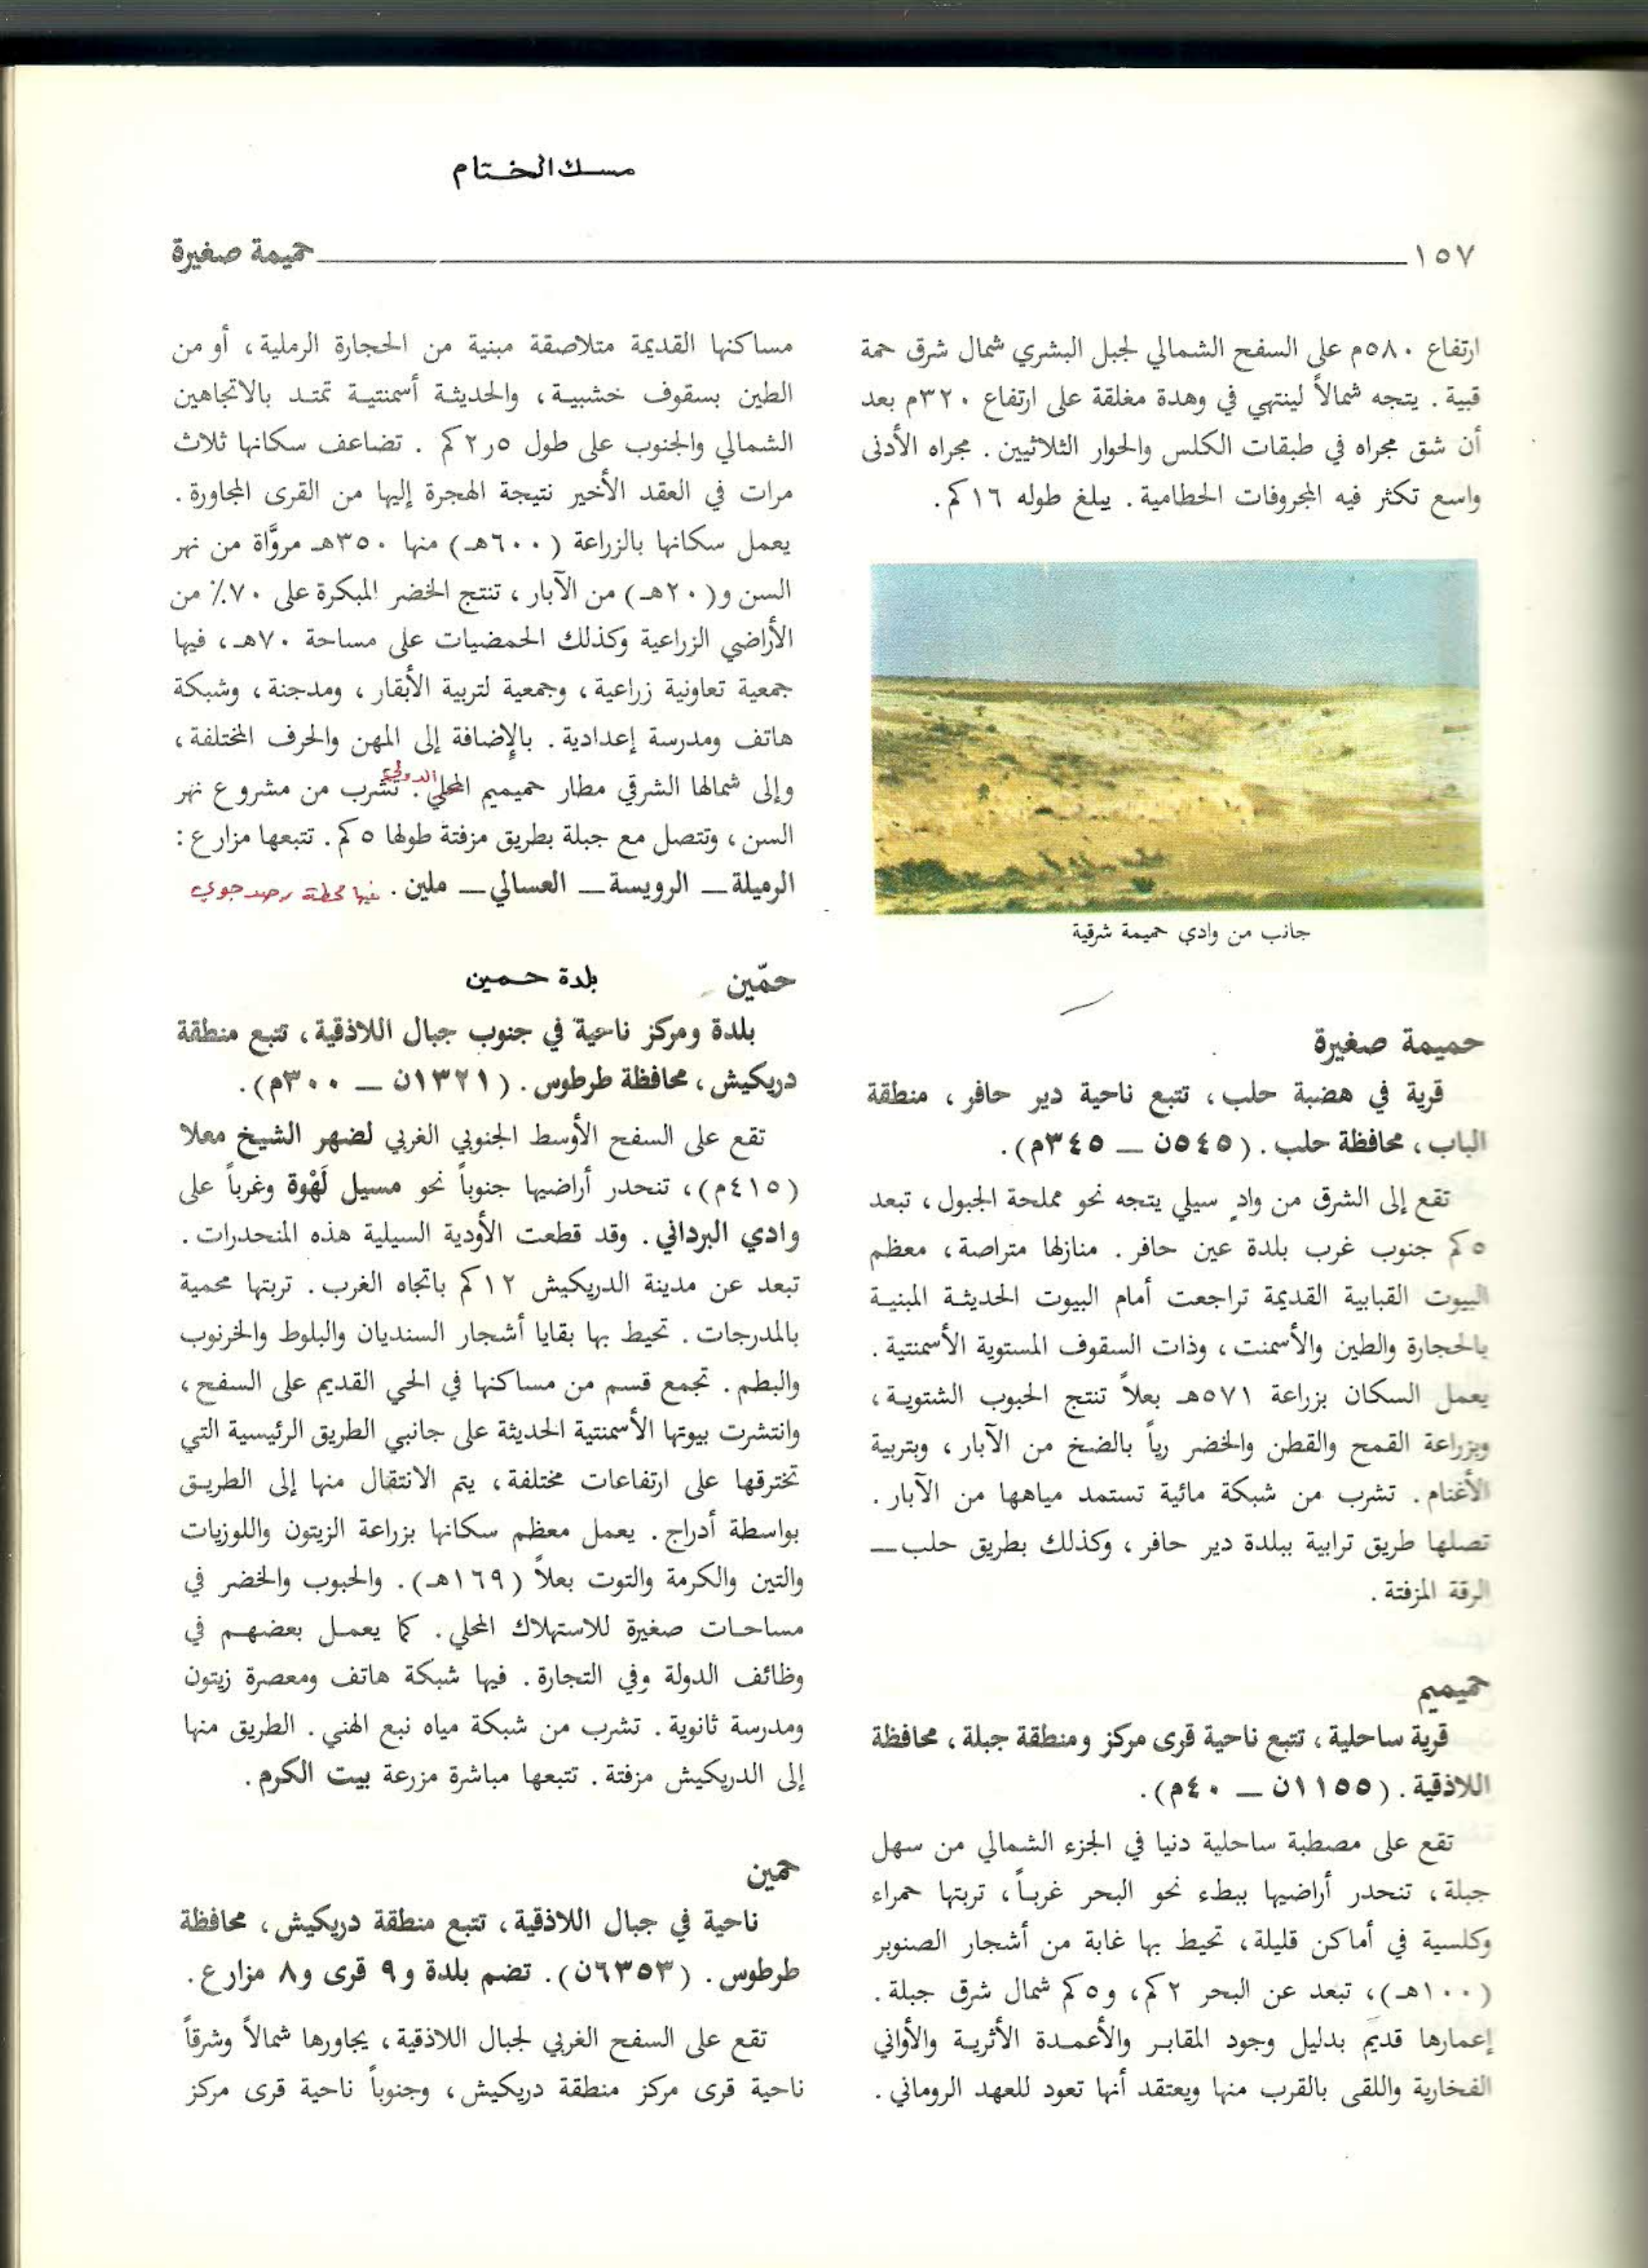 مسك الختام
١٥٧ حميمة صغيرة
ارتفاع ٥٨٠م على السفح الشمالي لجبل البشري شمال شرق حمة
قبية . يتجه شمالاً لينتهي في وهدة مغلقة على ارتفاع ٣٢٠م بعد
أن شق مجراه في طبقات الكلس والحوار الثلاثيين . مجراه الأدنى
واسع تكثر فيه المجروفات الحطامية . يبلغ طوله ١٦كم .
جانب من وادي حميمة شرقية
حميمة صغيرة
قرية في هضبة حلب ، تتبع ناحية دير حافر ، منطقة
الباب ، محافظة حلب . (٥٤٥ن — ٣٤٥م) .
تقع إلى الشرق من وادٍ سيلي يتجه نحو مملحة الجبول ، تبعد
٥كم جنوب غرب بلدة عين حافر . منازلها متراصة ، معظم
البيوت القبابية القديمة تراجعت أمام البيوت الحديثة المبنية
بالحجارة والطين والأسمنت ، وذات السقوف المستوية الأسمنتية .
يعمل السكان بزراعة ٥٧١هـ بعلاً تنتج الحبوب الشتوية ،
وبزراعة القمح والقطن والخضر رياً بالضخ من الآبار ، وبتربية
الأغنام . تشرب من شبكة مائية تستمد مياهها من الآبار .
تصلها طريق ترابية ببلدة دير حافر ، وكذلك بطريق حلب —
الرقة المزفتة .
حميميم
قرية ساحلية ، تتبع ناحية قرى مركز ومنطقة جبلة ، محافظة
اللاذقية . (١١٥٥ن — ٤٠م) .
تقع على مصطبة ساحلية دنيا في الجزء الشمالي من سهل
جبلة ، تنحدر أراضيها ببطء نحو البحر غرباً ، تربتها حمراء
وكلسية في أماكن قليلة ، تحيط بها غابة من أشجار الصنوبر
(١٠٠هـ) ، تبعد عن البحر ٢كم ، و٥كم شمال شرق جبلة .
إعمارها قديم بدليل وجود المقابر والأعمدة الأثرية والأواني
الفخارية واللقى بالقرب منها ويعتقد أنها تعود للعهد الروماني .
مساكنها القديمة متلاصقة مبنية من الحجارة الرملية ، أو من
الطين بسقوف خشبية ، والحديثة أسمنتية تمتد بالاتجاهين
الشمالي والجنوب على طول ٥ر٢كم . تضاعف سكانها ثلاث
مرات في العقد الأخير نتيجة الهجرة إليها من القرى المجاورة .
يعمل سكانها بالزراعة (٦٠٠هـ) منها ٣٥٠هـ مروَّاة من نهر
السن و(٢٠هـ) من الآبار ، تنتج الخضر المبكرة على ٧٠٪ من
الأراضي الزراعية وكذلك الحمضيات على مساحة ٧٠هـ ، فيها
جمعية تعاونية زراعية ، وجمعية لتربية الأبقار ، ومدجنة ، وشبكة
هاتف ومدرسة إعدادية . بالإضافة إلى المهن والحرف المختلفة ،
الدولي
وإلى شمالها الشرقي مطار حميميم المحلي . تشرب من مشروع نهر
السن ، وتتصل مع جبلة بطريق مزفتة طولها ٥كم . تتبعها مزارع :
الرميلة — الرويسة — العسالي — ملين . فيها محطة رصد جوي
حمّين بلدة حمين
بلدة ومركز ناحية في جنوب جبال اللاذقية ، تتبع منطقة
دريكيش ، محافظة طرطوس . (١٣٢١ن — ٣٠٠م) .
تقع على السفح الأوسط الجنوبي الغربي لضهر الشيخ معلا
(٤١٥م) ، تنحدر أراضيها جنوباً نحو مسيل لَهْوة وغرباً على
وادي البرداني . وقد قطعت الأودية السيلية هذه المنحدرات .
تبعد عن مدينة الدريكيش ١٢كم باتجاه الغرب . تربتها محمية
بالمدرجات . تحيط بها بقايا أشجار السنديان والبلوط والخرنوب
والبطم . تجمع قسم من مساكنها في الحي القديم على السفح ،
وانتشرت بيوتها الأسمنتية الحديثة على جانبي الطريق الرئيسية التي
تخترقها على ارتفاعات مختلفة ، يتم الانتقال منها إلى الطريق
بواسطة أدراج . يعمل معظم سكانها بزراعة الزيتون واللوزيات
والتين والكرمة والتوت بعلاً (١٦٩هـ) . والحبوب والخضر في
مساحات صغيرة للاستهلاك المحلي . كما يعمل بعضهم في
وظائف الدولة وفي التجارة . فيها شبكة هاتف ومعصرة زيتون
ومدرسة ثانوية . تشرب من شبكة مياه نبع الهني . الطريق منها
إلى الدريكيش مزفتة . تتبعها مباشرة مزرعة بيت الكرم .
حمين
ناحية في جبال اللاذقية ، تتبع منطقة دريكيش ، محافظة
طرطوس . (٦٣٥٣ن) . تضم بلدة و٩ قرى و٨ مزارع .
تقع على السفح الغربي لجبال اللاذقية ، يجاورها شمالاً وشرقاً
ناحية قرى مركز منطقة دريكيش ، وجنوباً ناحية قرى مركز